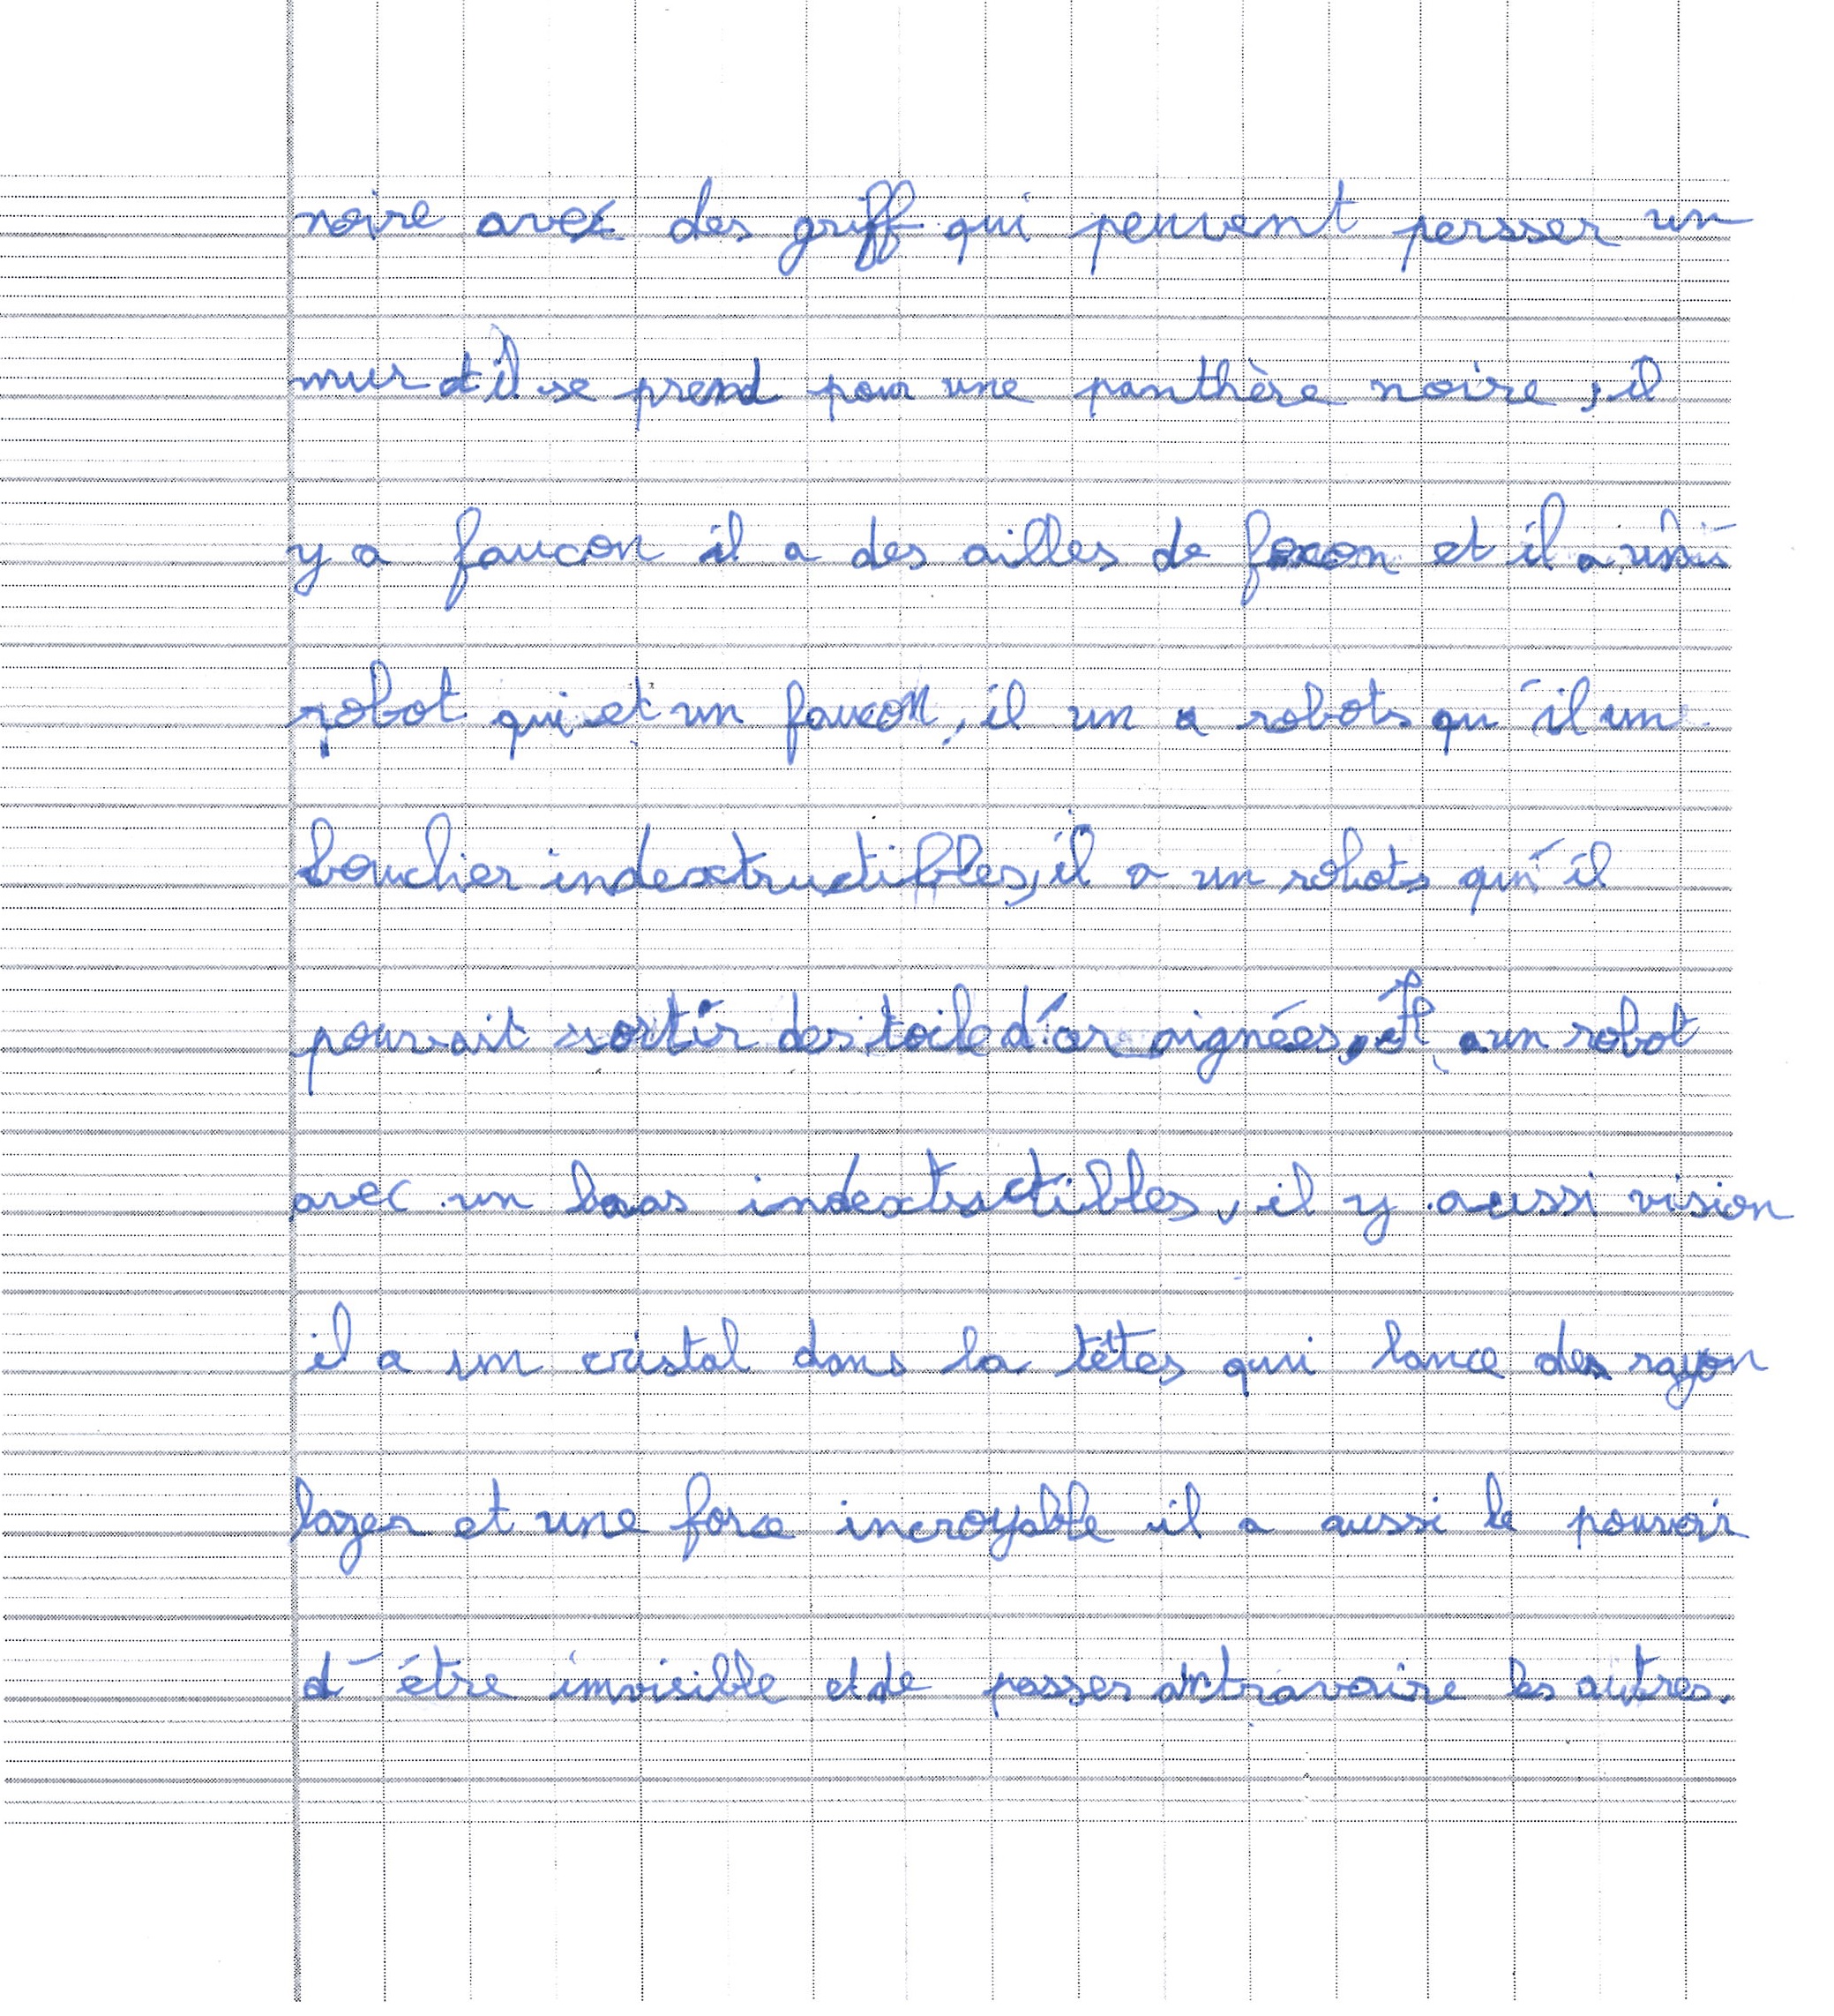 noire avec des griff qui peuvent persser un
mur et il se prend pour une panthère noire, il
y a faucon il a des ailles de focon et il a
robot qui et un faucon, il un a robots qu'il un
bouclier indextructibles, il a un robots qu'il
pouvait sortir des toile d'ar aignées, Il a un robot
avec un baas indextructibles, il y aussi vision
il a un cristal dans la têtes qui lance des rayon
lazer et une force incroyable il a aussi le pouvoir
d'être invisible et de passer antravaire les autres.